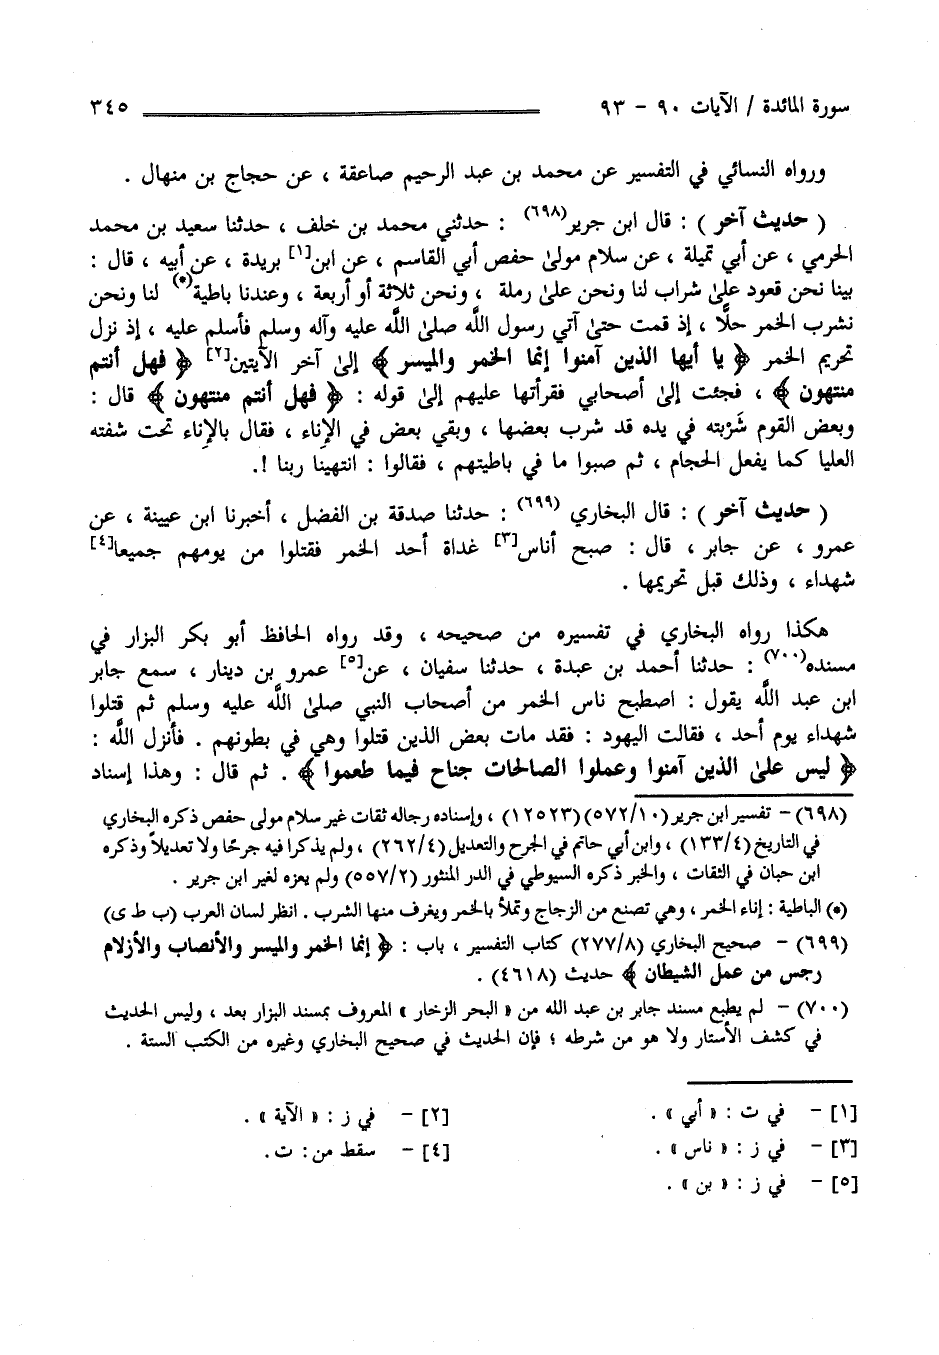 سورة المائدة / الآيات ٩٠ - ٩٣ ٣٤٥
ورواه النسائي في التفسير عن محمد بن عبد الرحيم صاعقة ، عن حجاج بن منهال .
( حديث آخر ) : قال ابن جرير(٦٩٨) : حدثني محمد بن خلف ، حدثنا سعيد بن محمد
الحرمي ، عن أبي تميلة ، عن سلام مولىٰ حفص أبي القاسم ، عن ابن[١] بريدة ، عن أبيه ، قال :
بينا نحن قعود علىٰ شراب لنا ونحن علىٰ رملة ، ونحن ثلاثة أو أربعة ، وعندنا باطية(*) لنا ونحن
نشرب الخمر حلًّا ، إذ قمت حتىٰ آتي رسول اللَّه صلىٰ اللَّه عليه وآله وسلم فأسلم عليه ، إذ نزل
تحريم الخمر ﴿ يا أيها الذين آمنوا إنما الخمر والميسر ﴾ إلىٰ آخر الآيتين[٢] ﴿ فهل أنتم
منتهون ﴾ ، فجئت إلىٰ أصحابي فقرأتها عليهم إلىٰ قوله : ﴿ فهل أنتم منتهون ﴾ قال :
وبعض القوم شَرْبته في يده قد شرب بعضها ، وبقي بعض في الإناء ، فقال بالإناء تحت شفته
العليا كما يفعل الحجام ، ثم صبوا ما في باطيتهم ، فقالوا : انتهينا ربنا !.
( حديث آخر ) : قال البخاري (٦٩٩) : حدثنا صدقة بن الفضل ، أخبرنا ابن عيينة ، عن
عمرو ، عن جابر ، قال : صبح أناس[٣] غداة أحد الخمر فقتلوا من يومهم جميعا[٤]
شهداء ، وذلك قبل تحريمها .
هكذا رواه البخاري في تفسيره من صحيحه ، وقد رواه الحافظ أبو بكر البزار في
مسنده(٧٠٠) : حدثنا أحمد بن عبدة ، حدثنا سفيان ، عن[٥] عمرو بن دينار ، سمع جابر
ابن عبد اللَّه يقول : اصطبح ناس الخمر من أصحاب النبي صلىٰ اللَّه عليه وسلم ثم قتلوا
شهداء يوم أحد ، فقالت اليهود : فقد مات بعض الذين قتلوا وهي في بطونهم . فأنزل اللَّه :
﴿ ليس علىٰ الذين آمنوا وعملوا الصالحات جناح فيما طعموا ﴾ . ثم قال : وهذا إسناد
(٦٩٨) - تفسير ابن جرير (٥٧٢/١٠) (١٢٥٢٣) ، وإسناده رجاله ثقات غير سلام مولى حفص ذكره البخاري
في التاريخ (١٣٣/٤) ، وابن أبي حاتم في الجرح والتعديل (٢٦٢/٤) ، ولم يذكرا فيه جرحًا ولا تعديلاً وذكره
ابن حبان في الثقات ، والخبر ذكره السيوطي في الدر المنثور (٥٥٧/٢) ولم يعزه لغير ابن جرير .
(*) الباطية : إناء الخمر ، وهي تصنع من الزجاج وتملأ بالخمر ويغرف منها الشرب . انظر لسان العرب (ب ط ى)
(٦٩٩) - صحيح البخاري (٢٧٧/٨) كتاب التفسير ، باب : ﴿ إنما الخمر والميسر والأنصاب والأزلام
رجس من عمل الشيطان ﴾ حديث (٤٦١٨) .
(٧٠٠) - لم يطبع مسند جابر بن عبد الله من « البحر الزخار » المعروف بمسند البزار بعد ، وليس الحديث
في كشف الأستار ولا هو من شرطه ؛ فإن الحديث في صحيح البخاري وغيره من الكتب الستة .
[١] - في ت : « أبي » . [٢] - في ز : « الآية » .
[٣] - في ز : « ناس » . [٤] - سقط من : ت .
[٥] - في ز : « بن » .